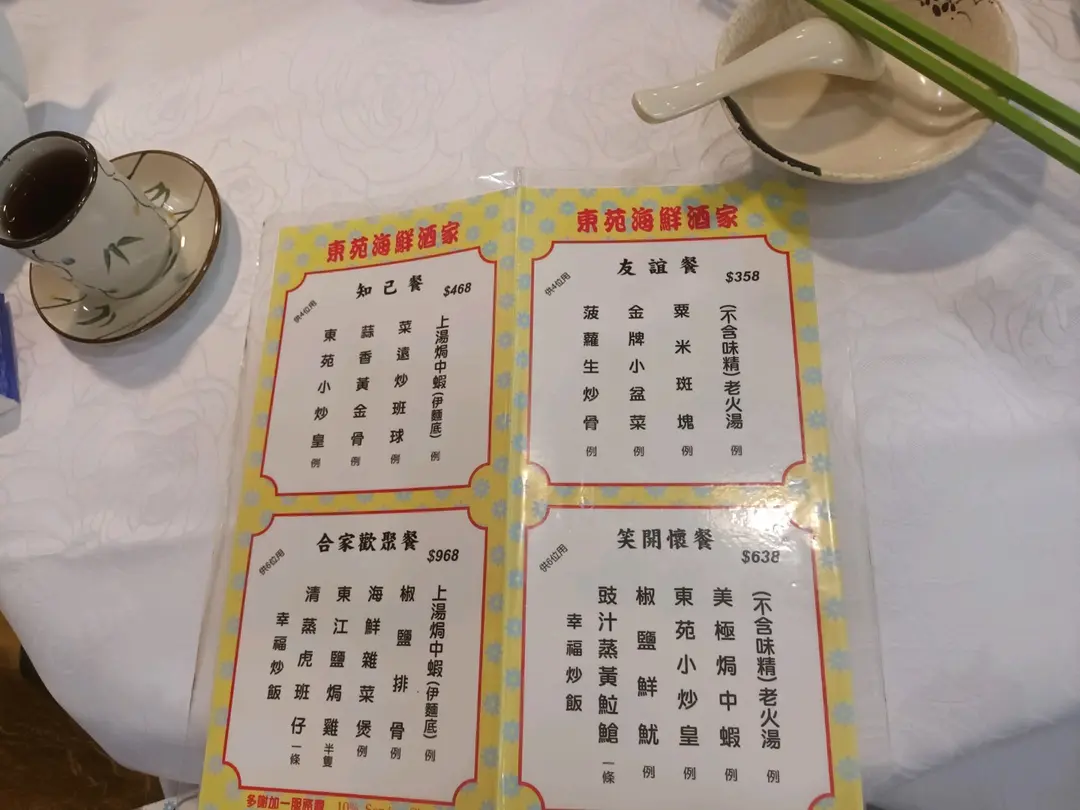 東苑海鮮酒家
知己餐
$468
供4位用
上湯焗中蝦(伊麵底) 例
菜遠炒班球 例
蒜香黃金骨 例
東苑小炒皇 例
東苑海鮮酒家
友誼餐
$358
供4位用
(不含味精)老火湯 例
粟米斑塊 例
金牌小盆菜 例
菠蘿生炒骨 例
合家歡聚餐
$968
供6位用
上湯焗中蝦(伊麵底) 例
椒鹽排骨 例
海鮮雜菜煲 例
東江鹽焗雞 半隻
清蒸虎班仔 一條
幸福炒飯
笑開懷餐
$638
供6位用
(不含味精)老火湯 例
美極焗中蝦 例
東苑小炒皇 例
椒鹽鮮魷 例
豉汁蒸黃䱽鯧 一條
幸福炒飯
多謝加一服務費 10%